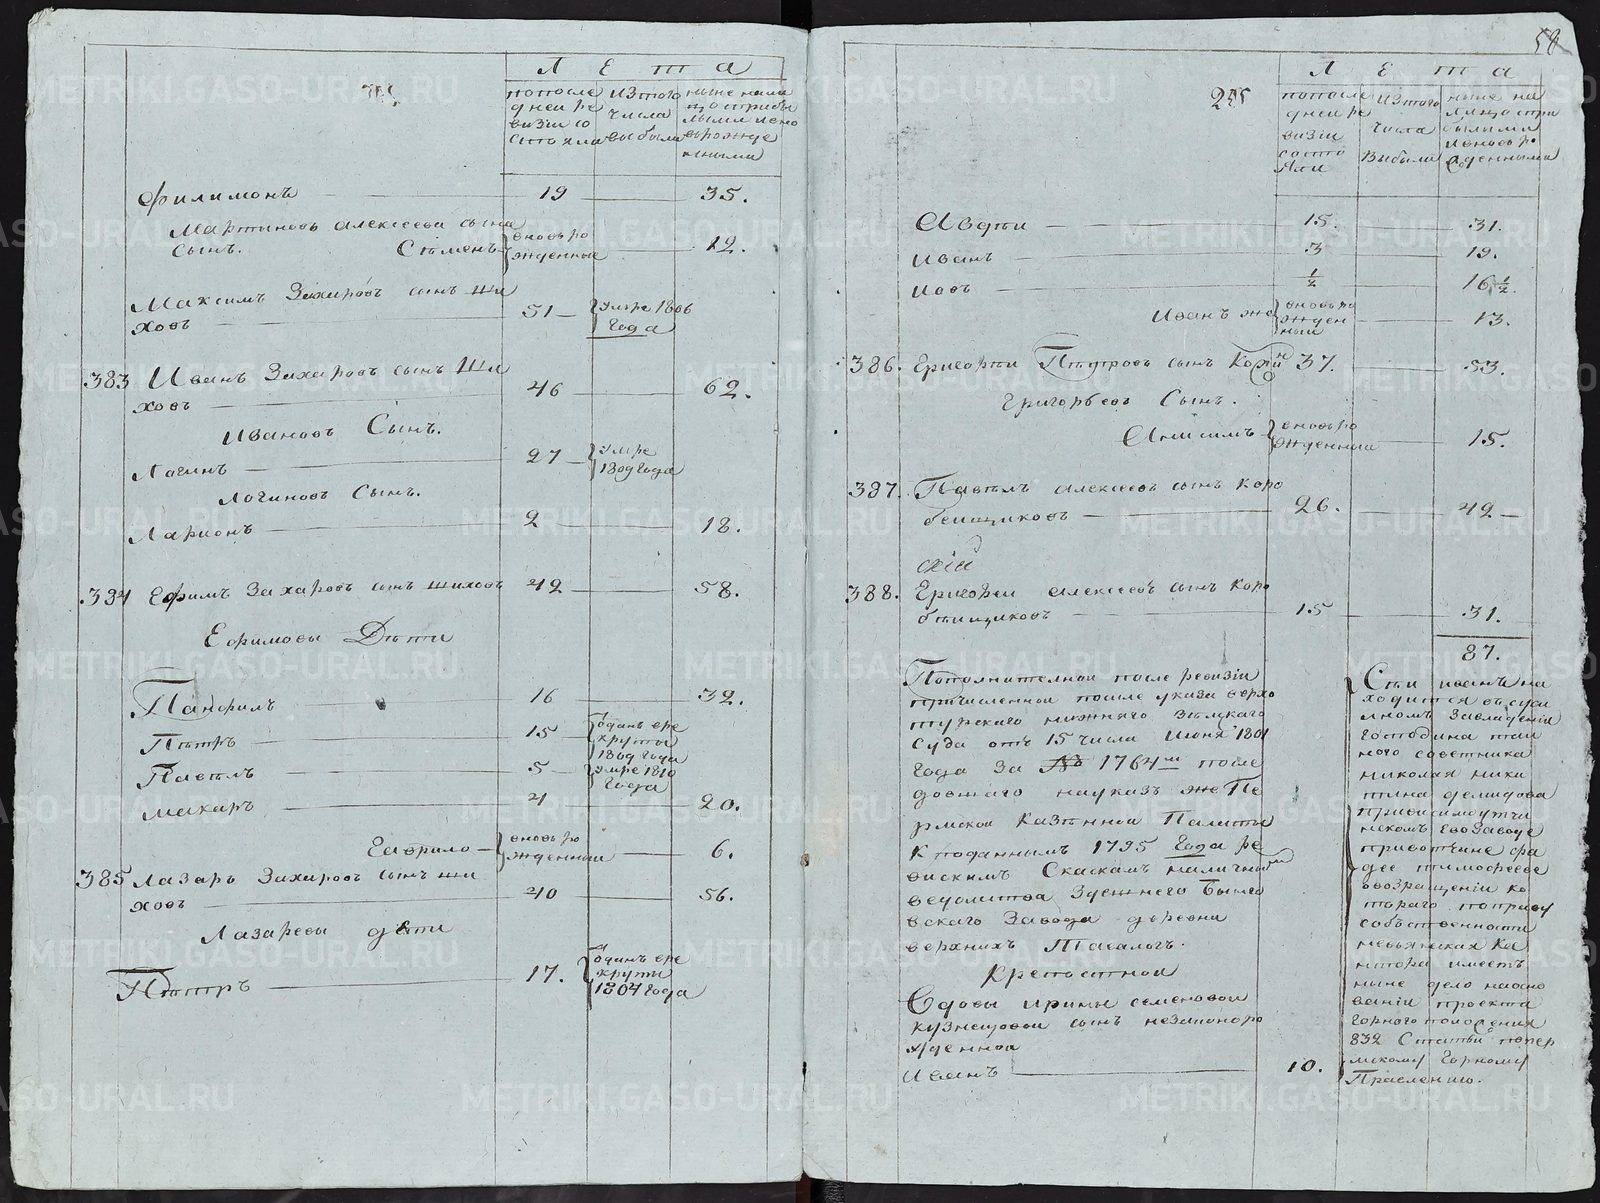 Л е т а
попосле дней ре визiи со стояли
изтого числа выбыли
ныне нали цо сприбы лыми ивно ворожде нными
Филимонъ 19 35.
Мартиновъ алексеева сына
сынъ. Семенъ вновь ро жденные 12.
Максимъ Захаровъ сынъ Ши
ховъ 51 умре 1806 года
383 Иванъ Захаровъ сынъ Ши
ховъ 46 62.
Ивановъ Сынъ.
Логинъ 27 умре 1809 года
Логиновъ Сынъ.
Ларионъ 2 18.
384 Ефимъ Захаровъ сынъ шиховъ 42 58.
Ефимовы Дѣти
Панфилъ 16 32.
Петръ 15 отданъ вре круты 1809 года
Павелъ 5 умре 1810 года
макаръ 4 20.
Гаврило вновь ро жденный 6.
385 Лазарь Захаровъ сынъ ши
ховъ 40 56.
Лазаревы дети
Петръ 17. отданъ вре круты 1804 года
58
255
Л е т а
попосле дней ре визiи состо яли
изтого числа выбыли
ныне на лицо спри былыми ивновь ро жденными
Авдей 15. 31.
Иванъ 3 19.
Иовъ ½ 16 ½.
Иванъ же вновь ро жден ный 13.
386. Григорей Петровъ сынъ 37. 53.
Григорьевъ Сынъ.
Анисимъ вновь ро жденный 15.
387. Павелъ алексеевъ сынъ Коро
бейщиковъ 26. 42
скiй
388. Григорей алексеевъ сынъ коро
бейщиковъ 15 31.
87.
Пополнителной после ревизiи
причисленной после указа верхо
турскаго нижняго земскаго
суда отъ 15 числа Июня 1801
года За № 1764м после
довшаго науказъ же Пе
рмской казенной Палаты
к поданнымъ 1795 года ре
вискимъ Скаскамъ наличной
ведомства Здешнего Быньго
вскаго Завода деревни
верхнихъ Тагалогъ.
крепостной
Вдовы ирины семеновой
кузнецовой сынъ незаконоро
жденной
Иванъ 10.
Сей иванъ на
ходится въ
владенiи
Господина тай
ного советника
николая ники
тича демидова
при
ево Заводе
привотчине
тимофееве
овозвращенiи ко
тораго поправу
собственности
невьянская Ка
нтора имеетъ
ныне дело наосно
ванiи проекта
горного положения
832 Статьи попер
мскому Горному
Правлению.